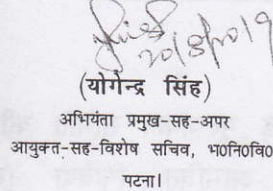 20/8/2019
(योगेन्द्र सिंह)
अभियंता प्रमुख-सह-अपर
आयुक्त-सह-विशेष सचिव, भ0नि0वि0
पटना।